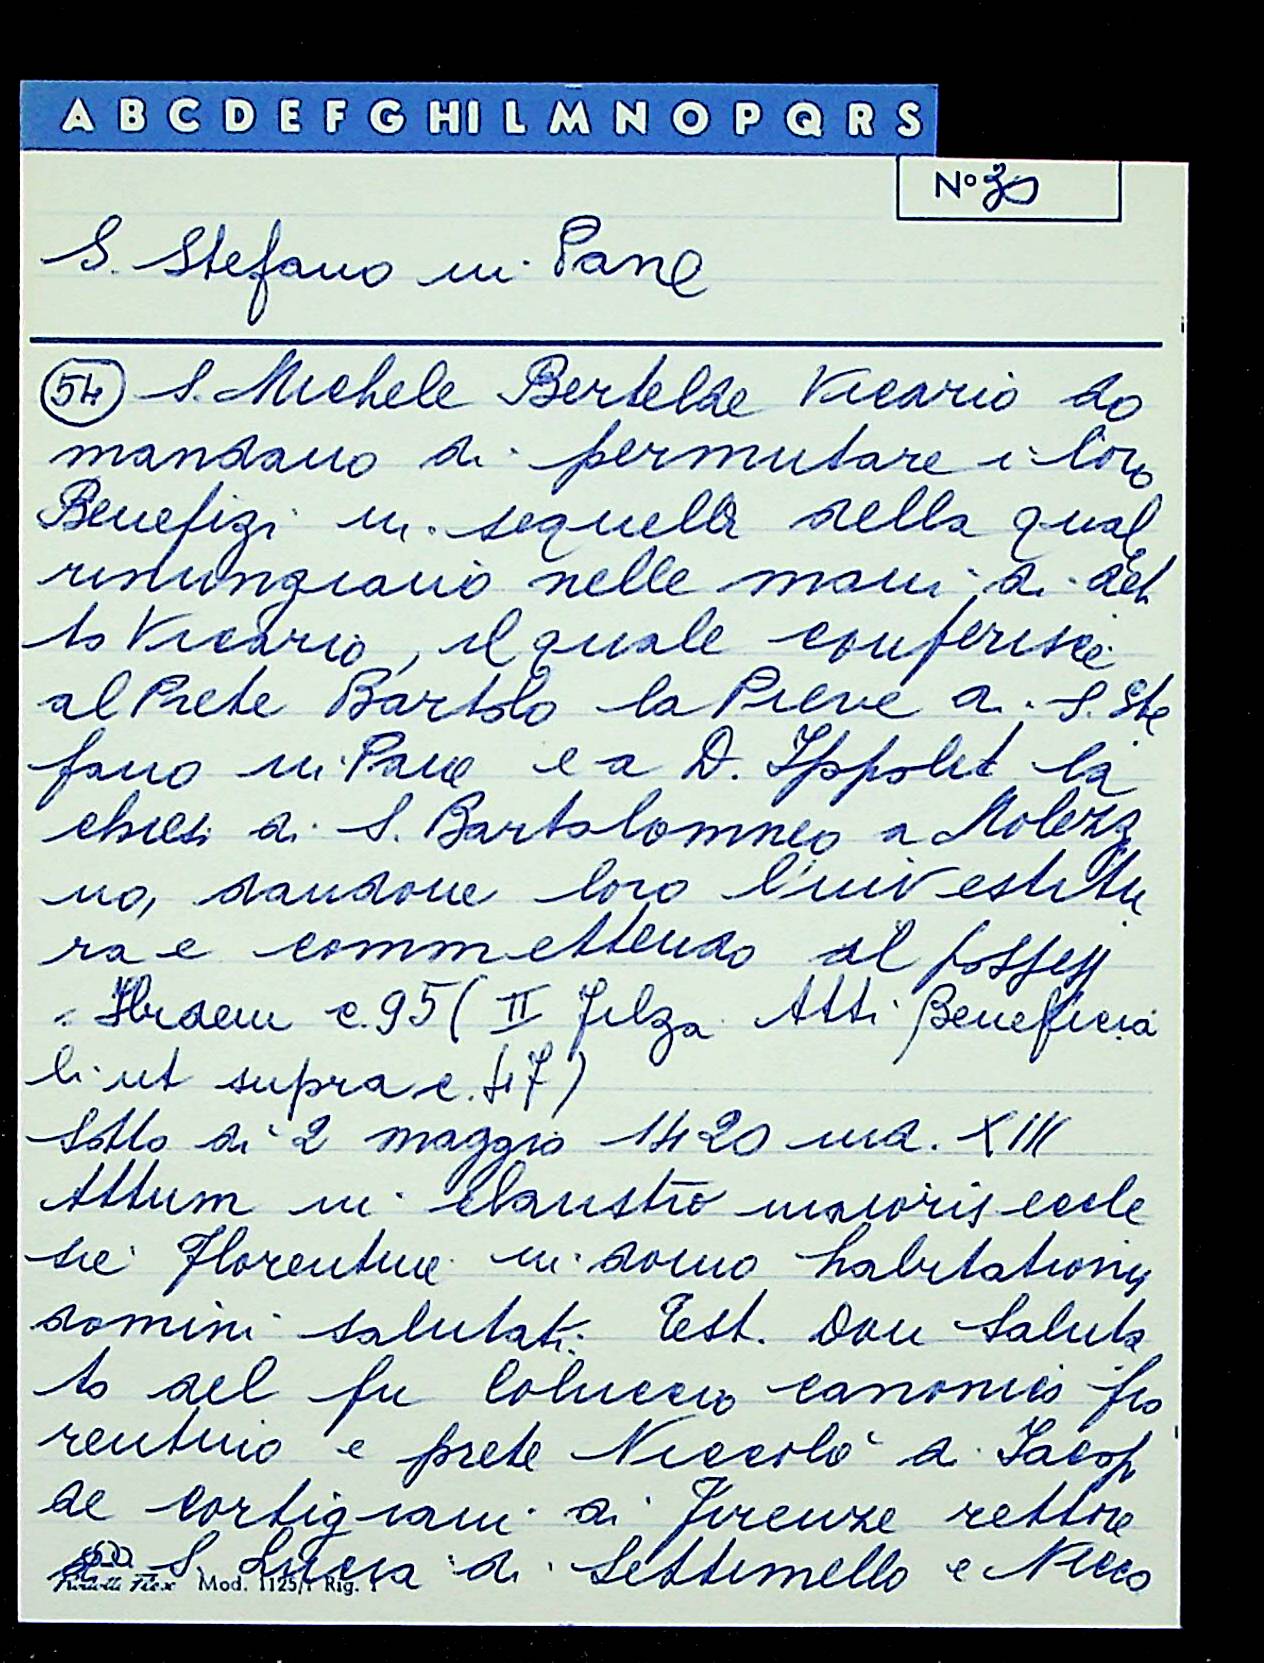 A B C D E F G H I L M N O P Q R S
N° 30
S. Stefano in Pane
54 S. Michele Bertelde Vicario do
mandano di permutare i loro
Benefizi in sequela della qual
rinunziano nelle mani di det
to Vicario, il quale conferisce
al Prete Bartolo la Pieve di S. Ste
fano in Pane e a D. Ippolit la
chiesa di S. Bartolommeo a Molezza
no, dandone loro l'investitu
ra e commettendo al possess
. Ibidem c. 95 (II Filza Atti Beneficia
li ut supra c. 47)
Sotto di 2 maggio 1420 ind. XIII
Attum in claustro maioris eccle
sie Florentine in domo habitationis
domini salutati. Test. Don Saluta
to del fu Coluccio canonico fio
rentino e prete Niccolò di Iacop
de Cortigiani di Firenze rettore
di S. Lucia di Settimello e Nicco
Mod. 1125/1 Rig. 1